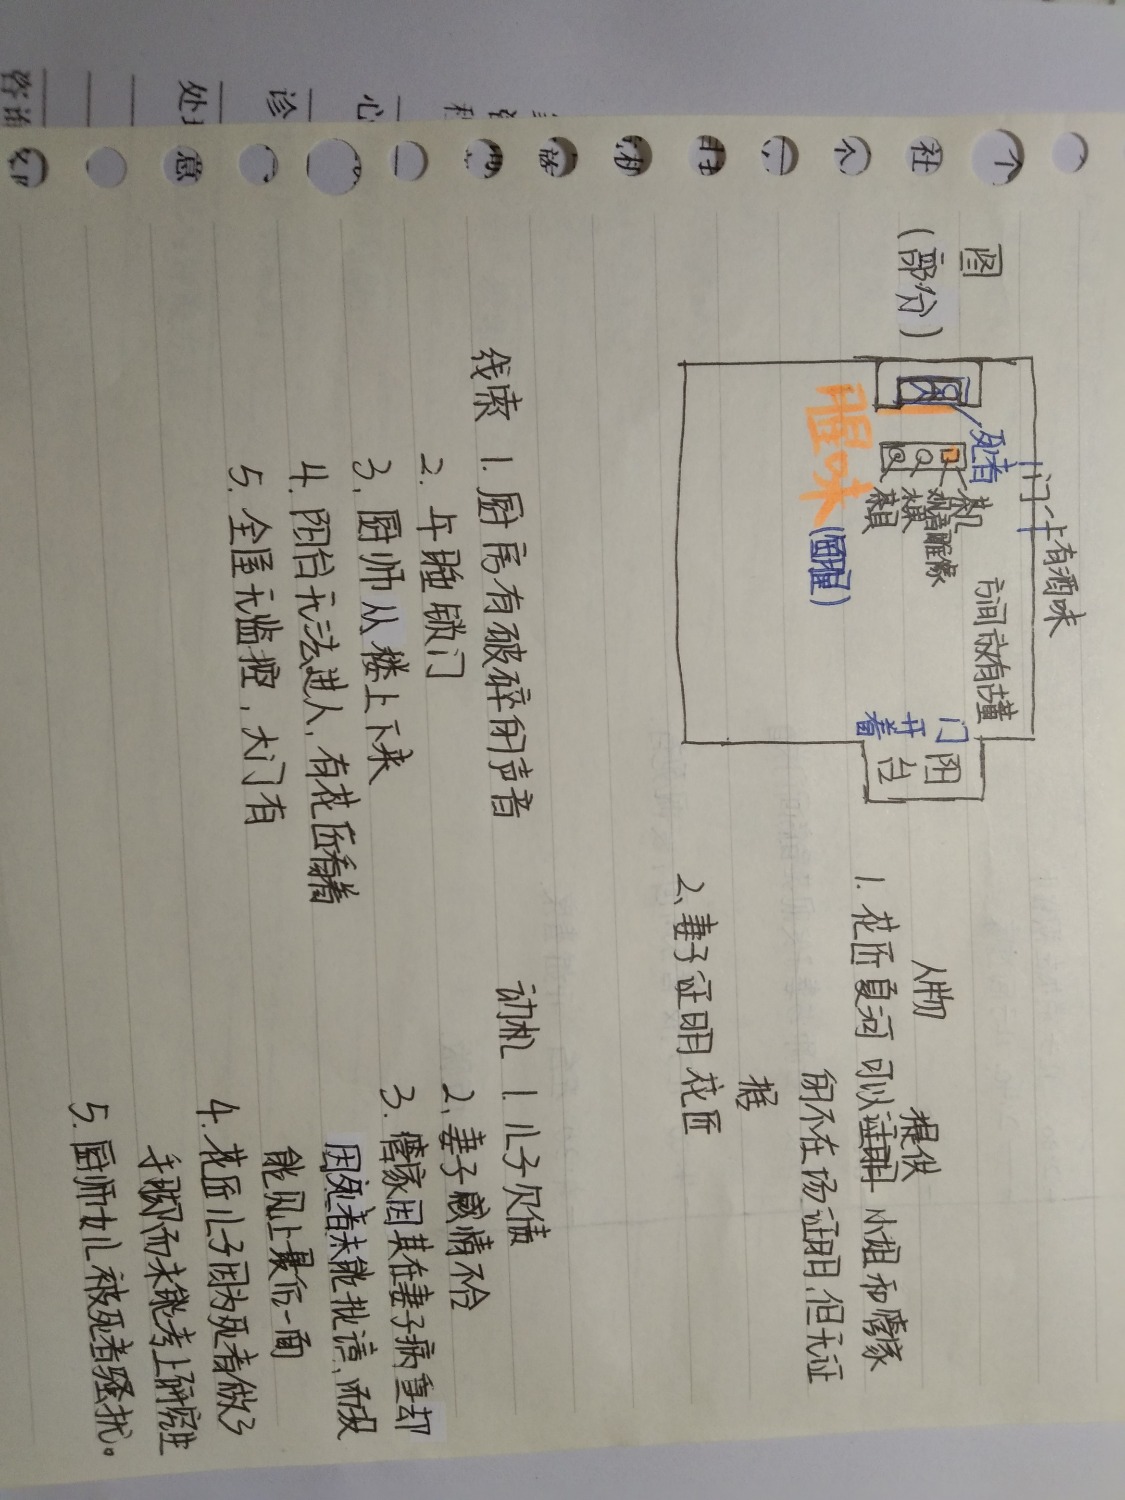 图
(部分)
门上有酒味
死者
房间放有古董
观音雕像
腥味
门
开着
阳
台
人物 提供
1. 花匠夏河 可以证明 小姐和管家
的不在场证明,但无证
据
2、妻子证明花匠
线索 1. 厨房有破碎的声音
2. 午睡锁门
3. 厨师从楼上下来
4. 阳台无法进人,有花匠看着
5. 全屋无监控,大门有
动机 1. 儿子欠债
2、妻子感情不合
3. 管家因其在妻子病重却
因死者未能批请,而没
能见上最后一面
4. 花匠儿子因为死者做了
手脚而未能考上研究生
5. 厨师女儿被死者骚扰。